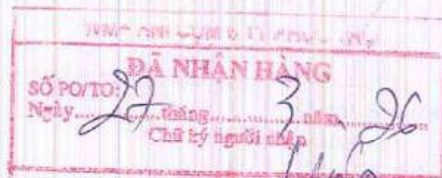 ĐÃ NHẬN HÀNG
SỐ PO/TO:
Ngày 27 tháng 3 năm 26
Chữ ký người nhận